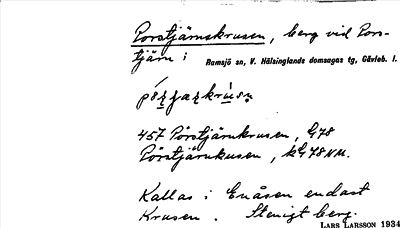 Porstjärnskrusen, berg vid Pors-
tjärn i Ramsjö sn, V. Hälsinglands domsagas tg, Gävleb. l.
457 Porstjärnkrusen, G78
Porstjärnkusen, kG78NM.
Kallas i Enåsen endast
Krusen. Stenigt berg.
LARS LARSSON 1934